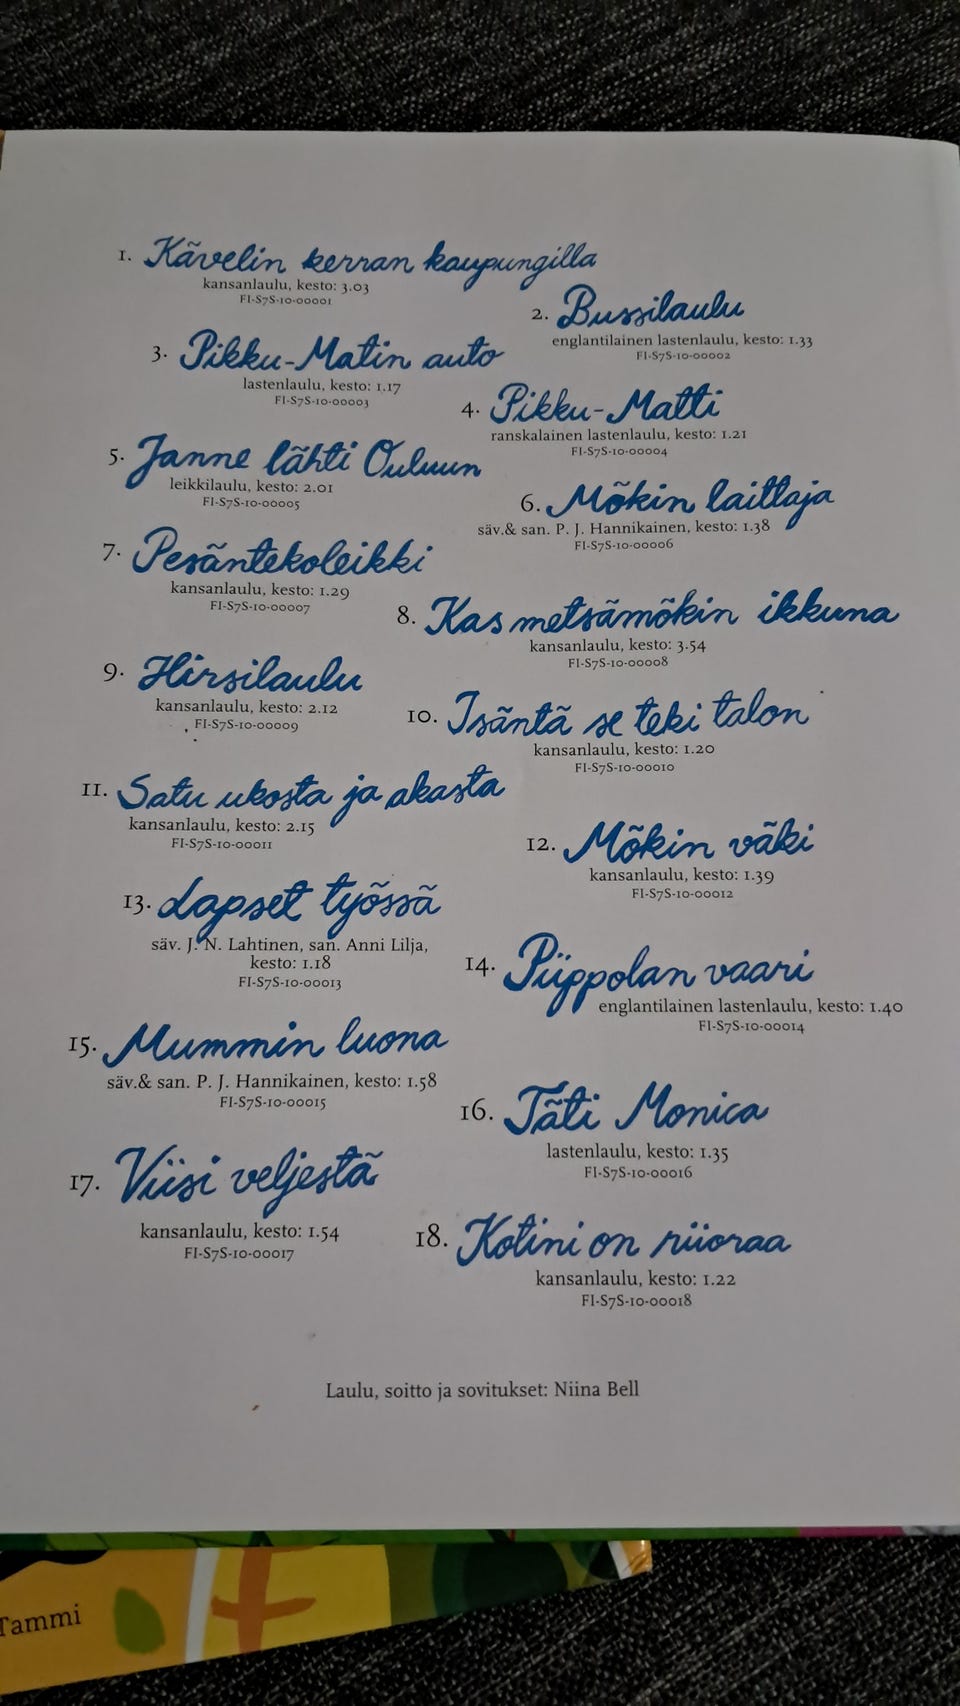 1. Kävelin kerran kaupungilla
kansanlaulu, kesto: 3.03
FI-S7S-10-00001
2. Bussilaulu
englantilainen lastenlaulu, kesto: 1.33
FI-S7S-10-00002
3. Pikku-Matin auto
lastenlaulu, kesto: 1.17
FI-S7S-10-00003
4. Pikku-Matti
ranskalainen lastenlaulu, kesto: 1.21
FI-S7S-10-00004
5. Janne lähti Ouluun
leikkilaulu, kesto: 2.01
FI-S7S-10-00005
6. Mökin laittaja
säv.& san. P. J. Hannikainen, kesto: 1.38
FI-S7S-10-00006
7. Pesäntekoleikki
kansanlaulu, kesto: 1.29
FI-S7S-10-00007
8. Kas metsämökin ikkuna
kansanlaulu, kesto: 3.54
FI-S7S-10-00008
9. Hirsilaulu
kansanlaulu, kesto: 2.12
FI-S7S-10-00009
10. Isäntä se teki talon
kansanlaulu, kesto: 1.20
FI-S7S-10-00010
11. Satu ukosta ja akasta
kansanlaulu, kesto: 2.15
FI-S7S-10-00011
12. Mökin väki
kansanlaulu, kesto: 1.39
FI-S7S-10-00012
13. Lapset työssä
säv. J. N. Lahtinen, san. Anni Lilja,
kesto: 1.18
FI-S7S-10-00013
14. Piippolan vaari
englantilainen lastenlaulu, kesto: 1.40
FI-S7S-10-00014
15. Mummin luona
säv.& san. P. J. Hannikainen, kesto: 1.58
FI-S7S-10-00015
16. Täti Monica
lastenlaulu, kesto: 1.35
FI-S7S-10-00016
17. Viisi veljestä
kansanlaulu, kesto: 1.54
FI-S7S-10-00017
18. Kotini on riioraa
kansanlaulu, kesto: 1.22
FI-S7S-10-00018
Laulu, soitto ja sovitukset: Niina Bell
Tammi